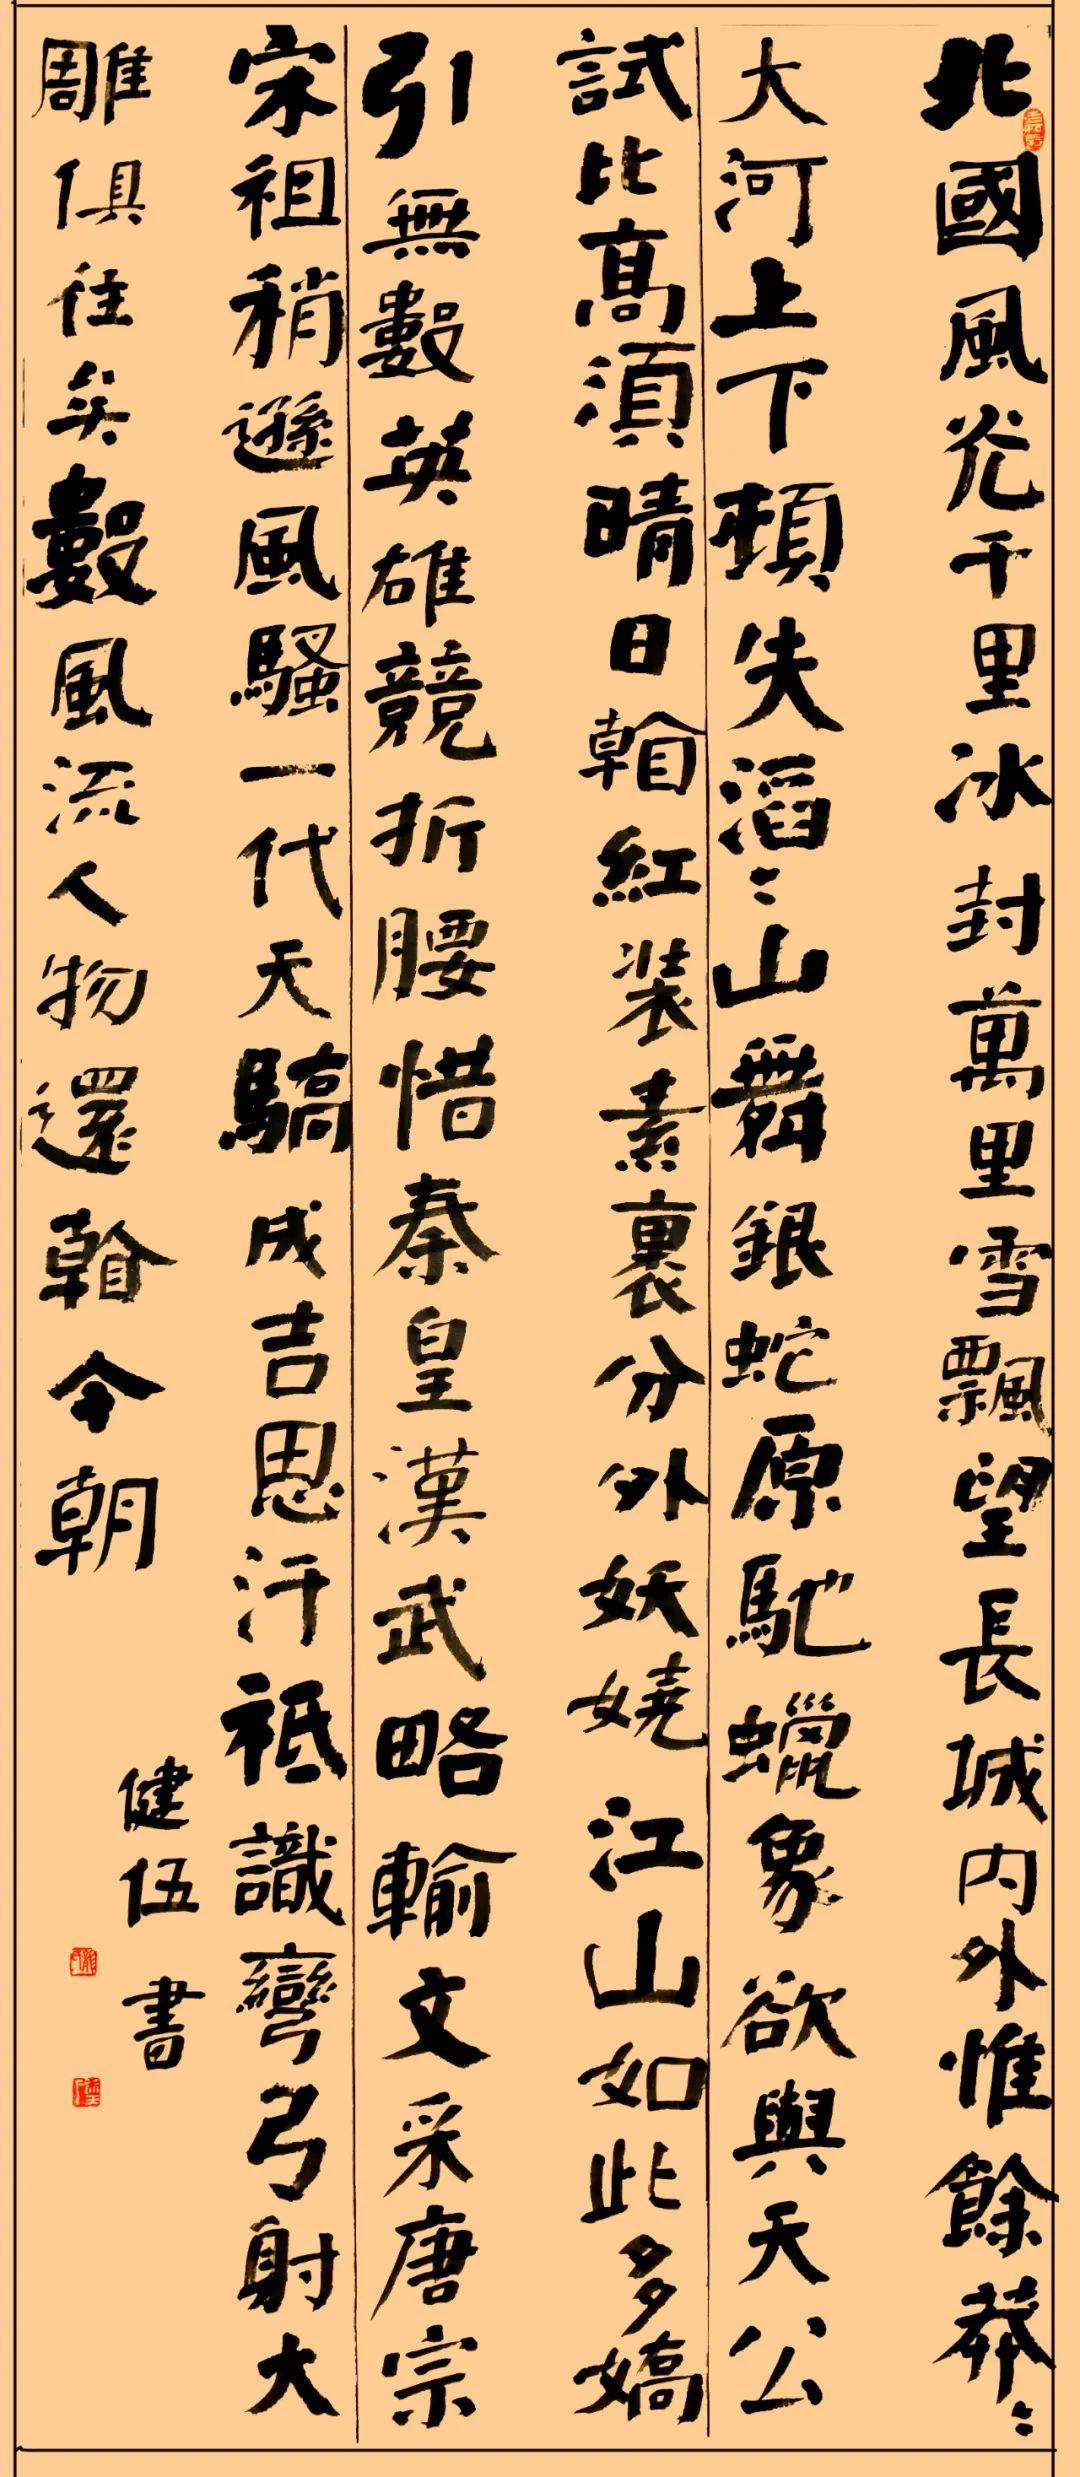 北國風光千里冰封萬里雪飄望長城內外惟餘莽〻
大河上下頓失滔〻山舞銀蛇原馳蠟象欲與天公
試比高須晴日看紅裝素裹分外妖嬈江山如此多嬌
引無數英雄競折腰惜秦皇漢武略輸文采唐宗
宋祖稍遜風騷一代天驕成吉思汗祗識彎弓射大
雕俱往矣數風流人物還看今朝
健伍書